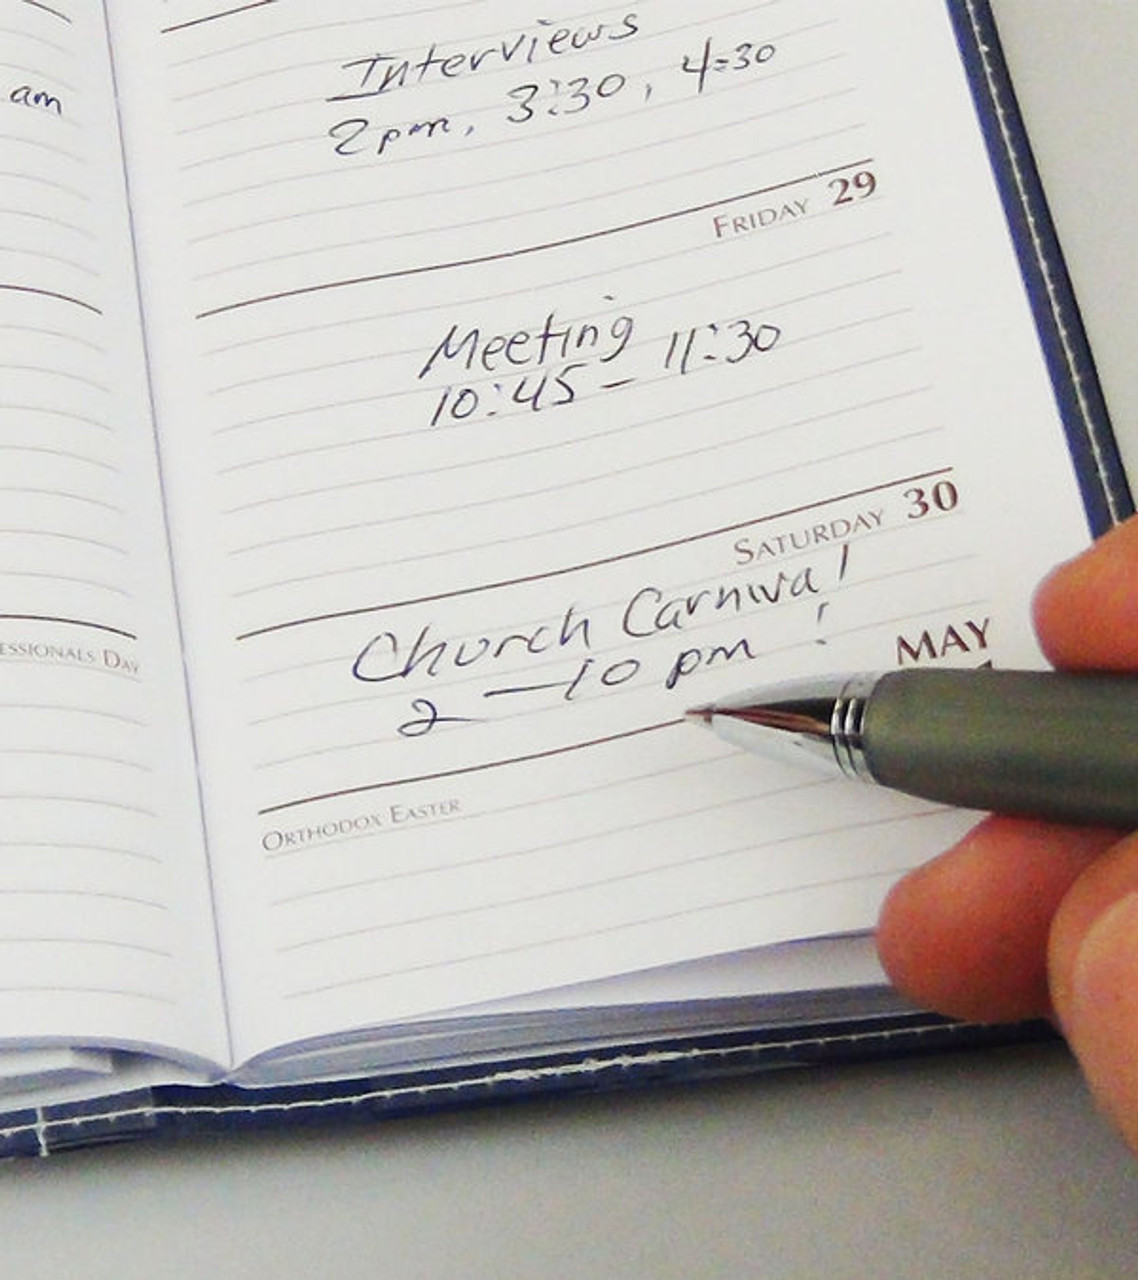 am
ESSIONALS DAY
Interviews
2pm, 3:30, 4:30
FRIDAY 29
Meeting
10:45 – 11:30
SATURDAY 30
Church Carnival
2 — 10 pm !
MAY
ORTHODOX EASTER